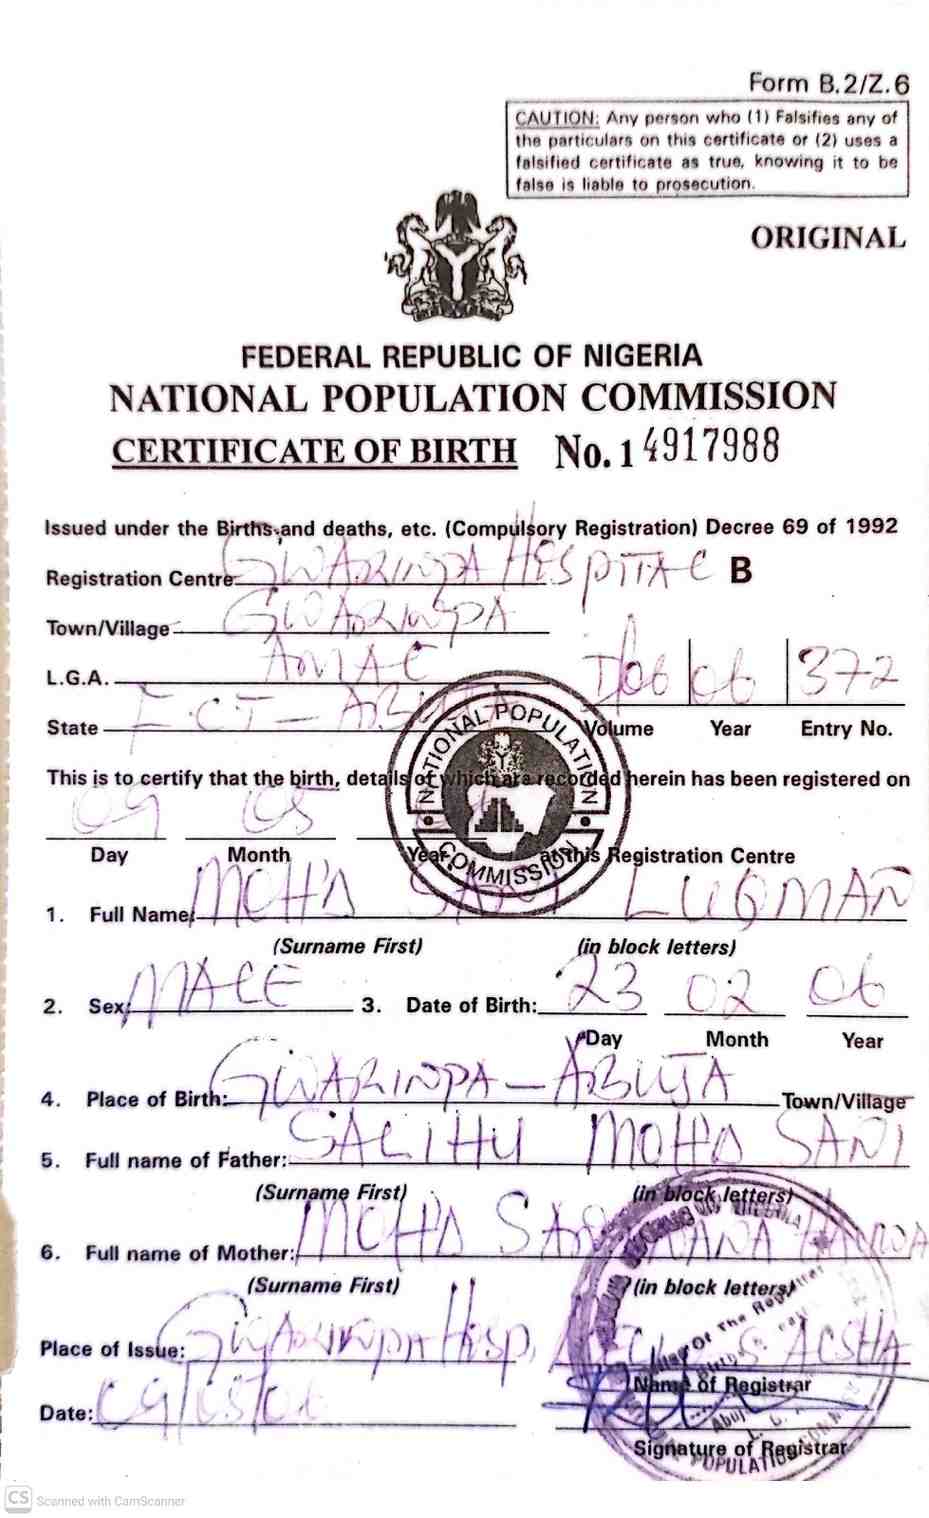 Form B.2/Z.6
CAUTION: Any person who (1) Falsifies any of
the particulars on this certificate or (2) uses a
falsified certificate as true, knowing it to be
false is liable to prosecution.
ORIGINAL
FEDERAL REPUBLIC OF NIGERIA
NATIONAL POPULATION COMMISSION
CERTIFICATE OF BIRTH No. 14917988
Issued under the Births and deaths, etc. (Compulsory Registration) Decree 69 of 1992
Registration Centre GWARINPA HOSPITAL B
Town/Village GWARINPA
L.G.A. AMAC 06 06 372
State F.C.T - ABUJA Volume Year Entry No.
NATIONAL POPULATION COMMISSION
This is to certify that the birth, details of which are recorded herein has been registered on
09 05
Day Month Year at this Registration Centre
1. Full Name MOH'D SANI LUQMAN
(Surname First) (in block letters)
2. Sex: MALE 3. Date of Birth: 23 02 06
Day Month Year
4. Place of Birth: GWARINPA - ABUJA Town/Village
5. Full name of Father: SALIHU MOHD SANI
(Surname First) (in block letters)
6. Full name of Mother: MOH'D SANI
(Surname First) (in block letters)
Place of Issue: GWARINPA HOSP.
Name of Registrar
Date: 09/05/06
Signature of Registrar
Of The Registrar
POPULATION COMM
CS Scanned with CamScanner